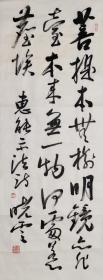 菩提本無樹明鏡亦非
臺本來無一物何處惹
塵埃 惠能示法诗 晓雲